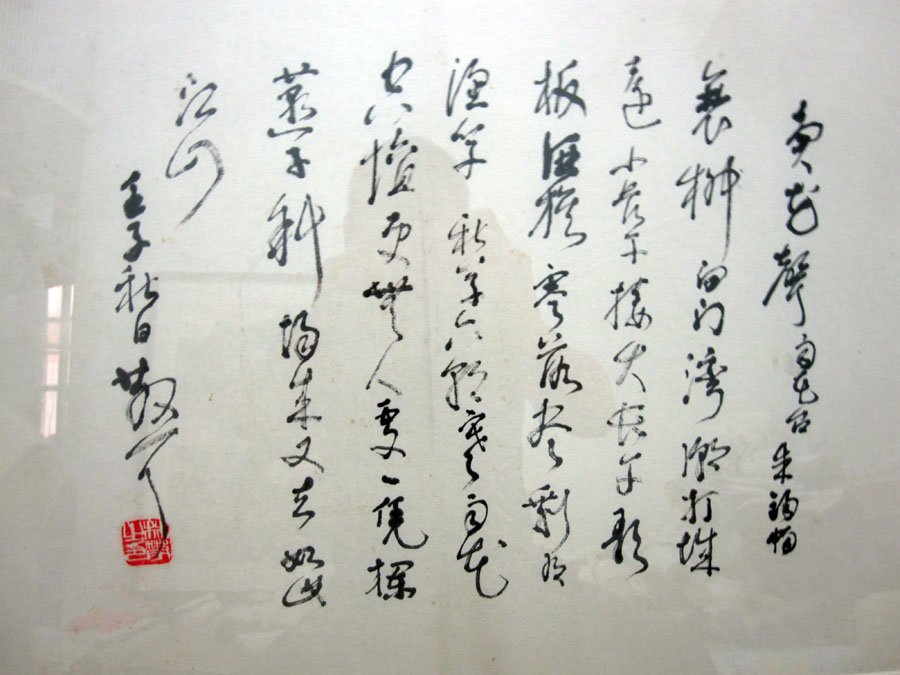 賣花聲 雨花台 朱錫鬯
衰柳白门湾潮打城
還小長干接大長干歌
板酒旗零落盡剩有
渔竿 秋草六朝寒雨花
空壇更無人處一憑欄
燕子斜陽來又去如此
江山
壬子秋日散耳